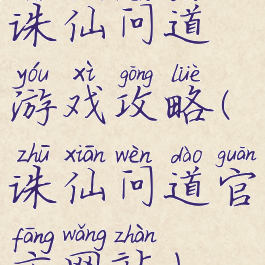 诛仙问道
yóu xì gōng lüè
游戏攻略(
zhū xiān wèn dào guān
诛仙问道官
fāng wǎng zhàn
方网站)